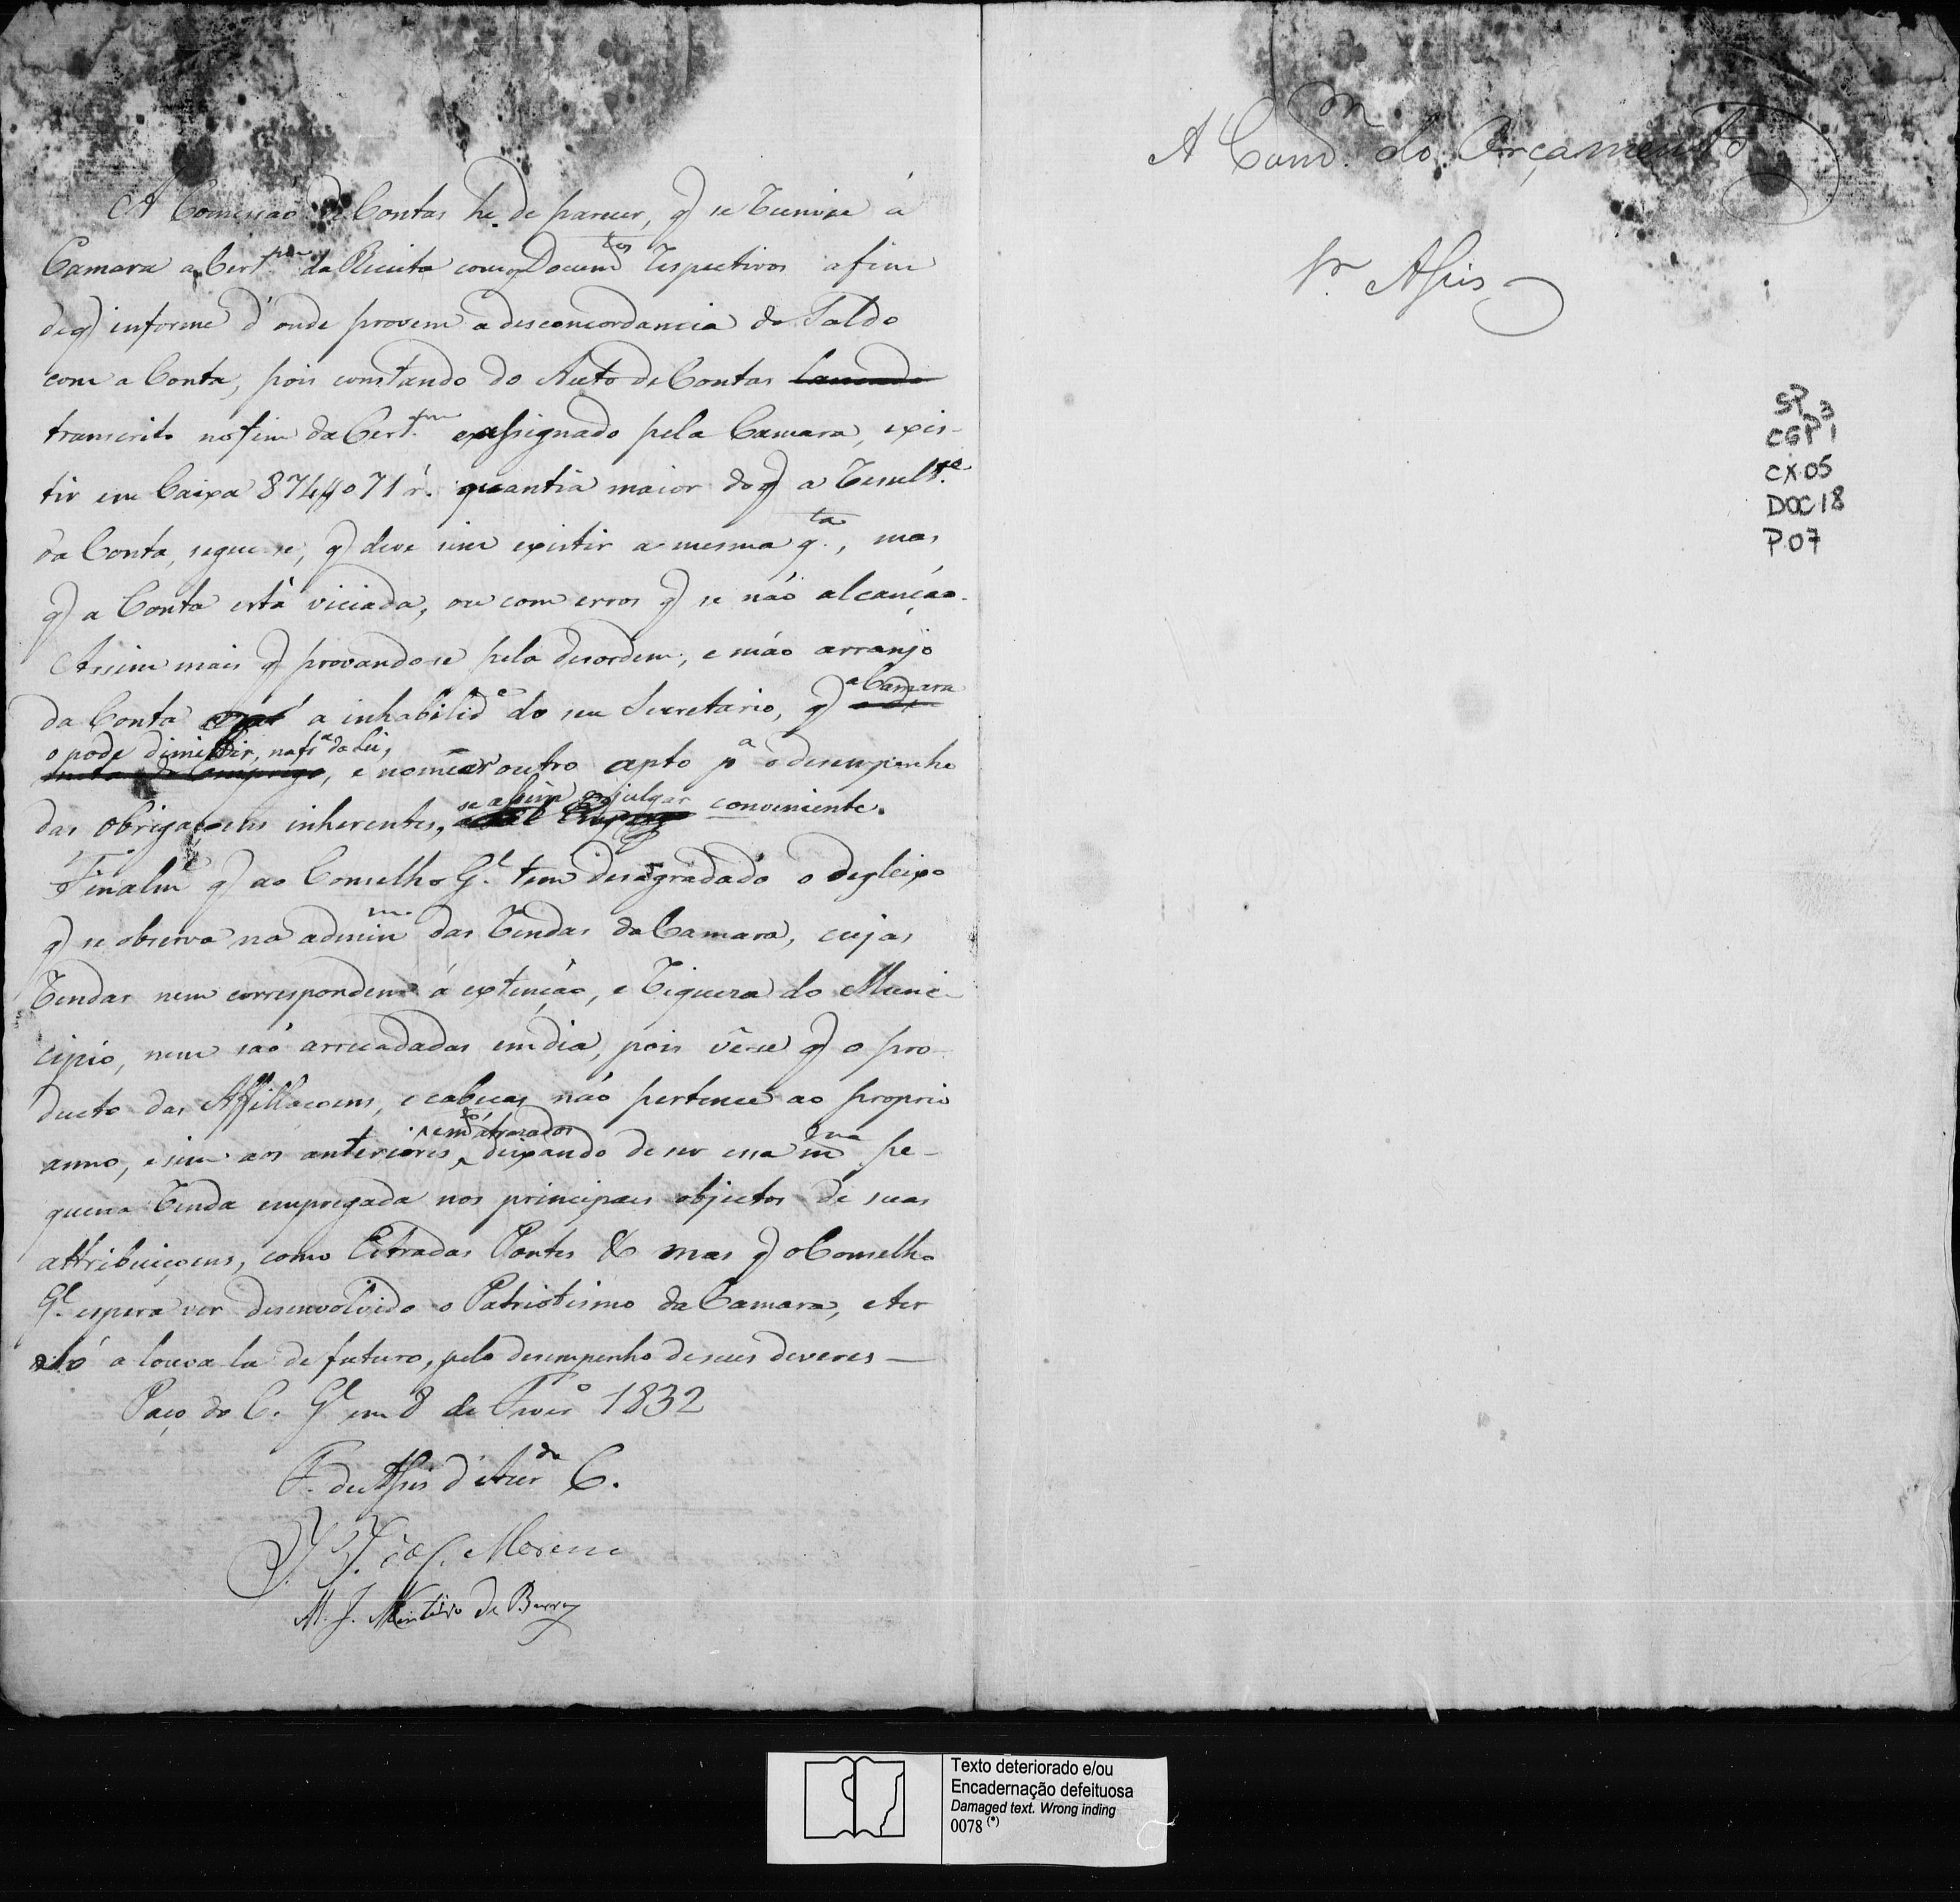 A Comissão de Contas he de parecer, q̃ se remise á
Camara a Cert.am da Receita com os Docum.tos respectivos afim
de q̃ informe d'onde provem a desconcordancia do Saldo
com a Conta, pois constando do Auto de Contas
transcrito no fim da Cert.am e assignado pela Camara, exis-
tir em Caixa 874$071 r.s quantia maior do q̃ a result.e
da Conta, segue-se, q̃ deve sim existir a mesma q.ta, mas
q̃ a Conta está viciada, ou com erros q̃ se não alcanção.
Assim mais q̃ provando-se pela desordem, e máo arranjo
da Conta a inhabilid.e do seu Secretario, q̃ a Camara
o pode dimittir, na fr.a da Lei, e nomear outro apto p.a o desempenho
das obrigaçoens inherentes, se assim o julgar conveniente.
Finalm.e q̃ ao Conselho G.l tem desagradado o desleixo
q̃ se observa na admin.m das rendas da Camara, cujas
rendas nem correspondem á extenção, e riqueza do Muni-
cipio, nem são arrecadadas em dia, pois vê-se q̃ o pro-
ducto das Affillaçoens, e cabeças não pertence ao proprio
anno, e sim aos anteriores atrazados, deixando de ser essa m.ma pe-
quena renda empregada nos principaes objectos de suas
attribuiçoens, como Estradas Pontes &c mas q̃ o Conselho
G.l espera ver desenvolvido o Patriotismo da Camara, e ter
só a louva-la de futuro, pelo desempenho de seus deveres —
Paço do C. G.l em 8 de Janr.o 1832
F. de Assis d'Alm.da C.
Moreira
M. J. Monteiro de Barros
A Com.m do Orçamento
Sr. Assis
SP
CGP1 3
CX.05
DOC.18
P.07
Texto deteriorado e/ou
Encadernação defeituosa
Damaged text. Wrong inding
0078 (*)